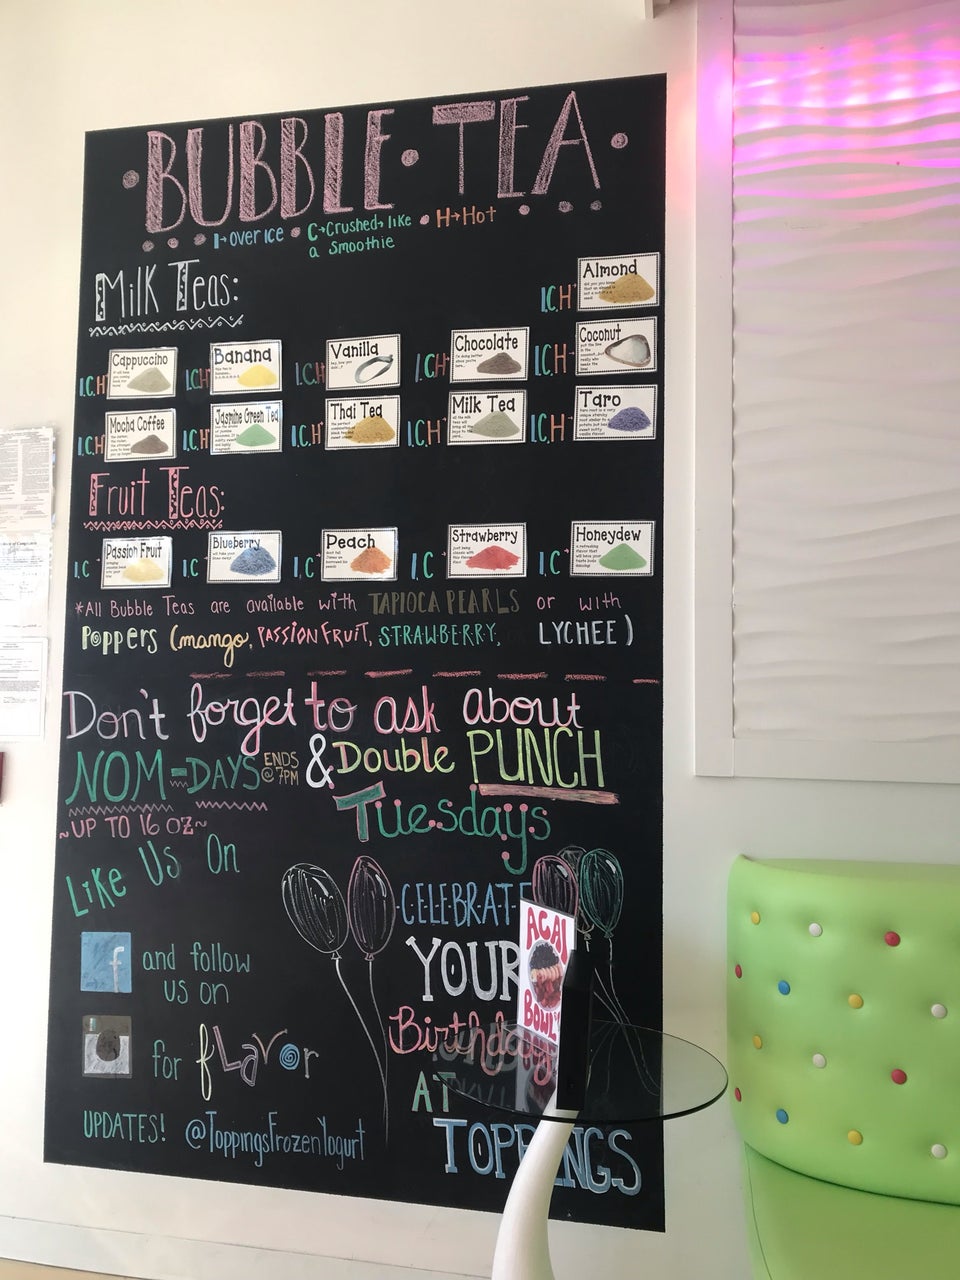 BUBBLE · TEA
I→over ice • C→Crushed→like a Smoothie • H→Hot
Milk Teas:
I,C,H Almond
I,C,H Cappuccino
I,C,H Banana
I,C,H Vanilla
I,C,H Chocolate
I,C,H Coconut
I,C,H Mocha Coffee
I,C,H Jasmine Green Tea
I,C,H Thai Tea
I,C,H Milk Tea
I,C,H Taro
Fruit Teas:
I,C Passion Fruit
I,C Blueberry
I,C Peach
I,C Strawberry
I,C Honeydew
*All Bubble Teas are available with TAPIOCA PEARLS or with
Poppers (mango, PASSION FRUIT, STRAWBERRY, LYCHEE)
Don't forget to ask about
NOM-DAYS ENDS @ 7PM & Double PUNCH
~UP TO 16 OZ~
Tuesdays
Like Us On
f
and follow
us on
for fLavor
UPDATES! @ToppingsFrozenYogurt
CELEBRATE
YOUR
Birthday
AT
TOPPINGS
ACAI
BOWL